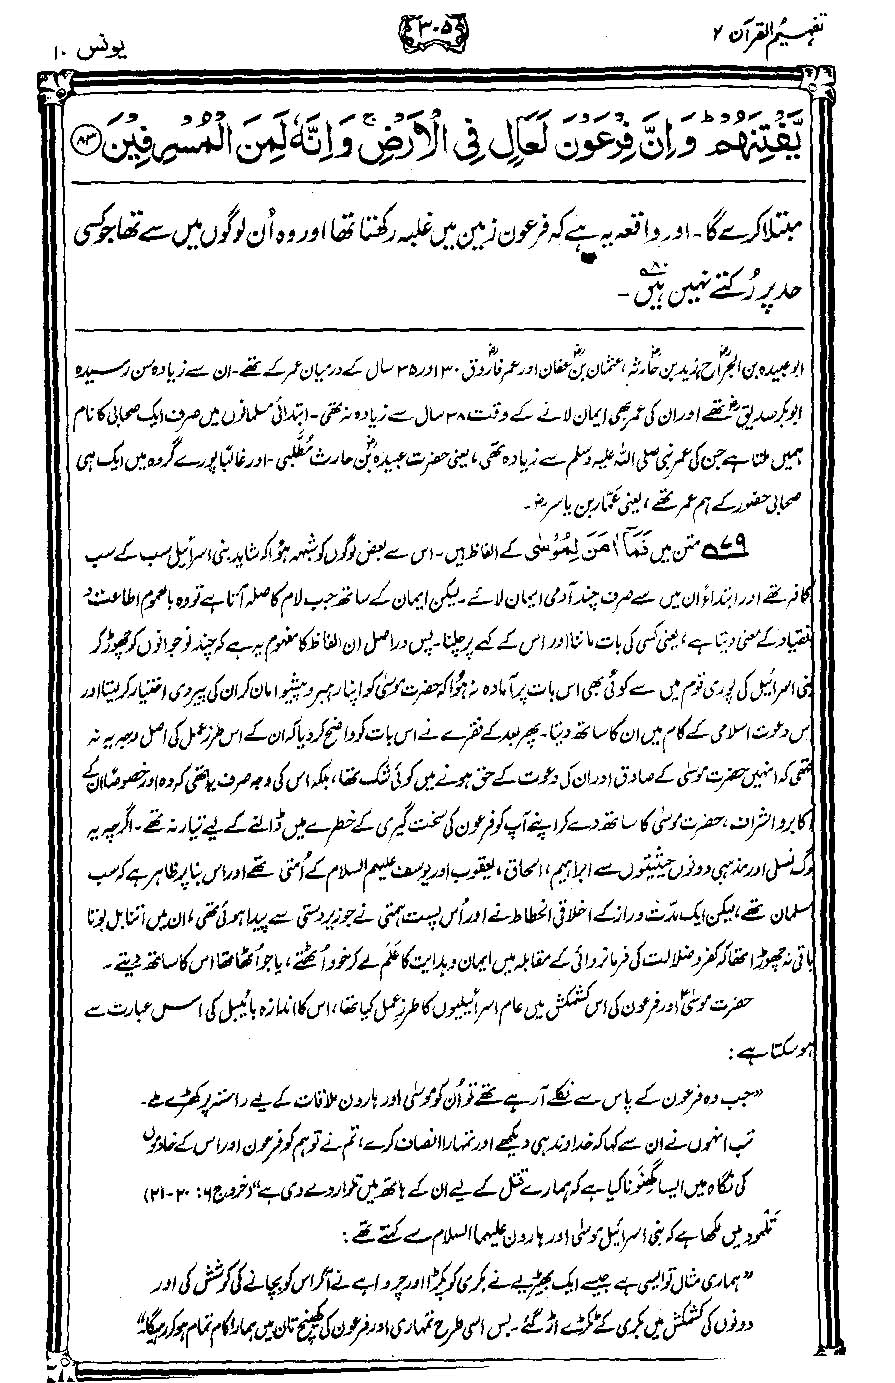 تفہیم القرآن ۲
۳۰۵
یونس ۱۰
يَّفْتِنَهُمْ ؕ وَاِنَّ فِرْعَوْنَ لَعَالٍ فِي الْاَرْضِ ۚ وَاِنَّهٗ لَمِنَ الْمُسْرِفِيْنَ ﴿۸۳﴾
مبتلا کرے گا۔ اور واقعہ یہ ہے کہ فرعون زمین میں غلبہ رکھتا تھا اور وہ اُن لوگوں میں سے تھا جو کسی
حد پر رُکتے نہیں ہیں۸۰۔
ابوعبیدہ بن الجراحؓ، زید بن حارثہؓ، عثمان بن عفانؓ اور عمر فاروقؓ ۳۰ اور ۳۵ سال کے درمیان عمر کے تھے۔ ان سے زیادہ سن رسیدہ
ابوبکر صدیقؓ تھے اور ان کی عمر بھی ایمان لانے کے وقت ۳۸ سال سے زیادہ نہ تھی۔ ابتدائی مسلمانوں میں صرف ایک صحابی کا نام
ہمیں ملتا ہے جن کی عمر نبی صلی اللہ علیہ وسلم سے زیادہ تھی، یعنی حضرت عبیدہؓ بن حارث مُطّلبی۔ اور غالباً پورے گروہ میں ایک ہی
صحابی حضور کے ہم عمر تھے، یعنی عمّار بن یاسرؓ۔
۷۹ متن میں فَمَآ اٰمَنَ لِمُوْسٰٓی کے الفاظ ہیں۔ اس سے بعض لوگوں کو شبہ ہوا کہ شاید بنی اسرائیل سب کے سب
کافر تھے اور ابتداءً ان میں سے صرف چند آدمی ایمان لائے۔ لیکن ایمان کے ساتھ جب لام کا صلہ آتا ہے تو وہ بالعموم اطاعت و
نقیاد کے معنی دیتا ہے، یعنی کسی کی بات ماننا اور اس کے کہے پر چلنا۔ پس دراصل ان الفاظ کا مفہوم یہ ہے کہ چند نوجوانوں کو چھوڑ کر
بنی اسرائیل کی پوری قوم میں سے کوئی بھی اس بات پر آمادہ نہ ہُوا کہ حضرت موسیٰ کو اپنا رہبر و پیشوا مان کر ان کی پیروی اختیار کر لیتا اور
اس دعوت اسلامی کے کام میں ان کا ساتھ دیتا۔ پھر بعد کے فقرے نے اس بات کو واضح کر دیا کہ ان کے اس طرزِ عمل کی اصل وجہ یہ نہ
تھی کہ انہیں حضرت موسیٰ کے صادق اور ان کی دعوت کے حق ہونے میں کوئی شک تھا، بلکہ اس کی وجہ صرف یہ تھی کہ وہ اور خصوصاً ان کے
اکابر و اشراف، حضرت موسیٰ کا ساتھ دے کر اپنے آپ کو فرعون کی سخت گیری کے خطرے میں ڈالنے کے لیے تیار نہ تھے۔ اگرچہ یہ
لوگ نسلی اور مذہبی دونوں حیثیتوں سے ابراہیم، اسحاق، یعقوب اور یوسف علیہم السلام کے اُمتی تھے اور اس بنا پر ظاہر ہے کہ سب
مسلمان تھے، لیکن ایک مدّت دراز کے اخلاقی انحطاط نے اور اُس پست ہمتی نے جو زیر دستی سے پیدا ہوئی تھی، ان میں اتنا بل بوتا
باقی نہ چھوڑا تھا کہ کفر و ضلالت کی فرمانروائی کے مقابلہ میں ایمان و ہدایت کا عَلَم لے کر خود اُٹھتے، یا جو اُٹھا تھا اس کا ساتھ دیتے۔
حضرت موسیٰؑ اور فرعون کی اس کشمکش میں عام اسرائیلیوں کا طرزِ عمل کیا تھا، اس کا اندازہ بائیبل کی اس عبارت سے
ہو سکتا ہے:
”جب وہ فرعون کے پاس سے نکلے آ رہے تھے تو اُن کو موسیٰ اور ہارون ملاقات کے لیے راستہ پر کھڑے ملے۔
تب انہوں نے ان سے کہا کہ خداوند ہی دیکھے اور تمہارا انصاف کرے، تم نے تو ہم کو فرعون اور اس کے خادموں
کی نگاہ میں ایسا گھنونا کیا ہے کہ ہمارے قتل کے لیے ان کے ہاتھ میں تلوار دے دی ہے“ (خروج ۶: ۲۰-۲۱)
تَلمود میں لکھا ہے کہ بنی اسرائیل موسیٰ اور ہارون علیہما السلام سے کہتے تھے:
”ہماری مثال تو ایسی ہے جیسے ایک بھیڑیے نے بکری کو پکڑا اور چرواہے نے آکر اس کو بچانے کی کوشش کی اور
دونوں کی کشمکش میں بکری کے ٹکڑے اڑ گئے۔ بس اسی طرح تمہاری اور فرعون کی کھینچ تان میں ہمارا کام تمام ہو کر رہیگا۔“